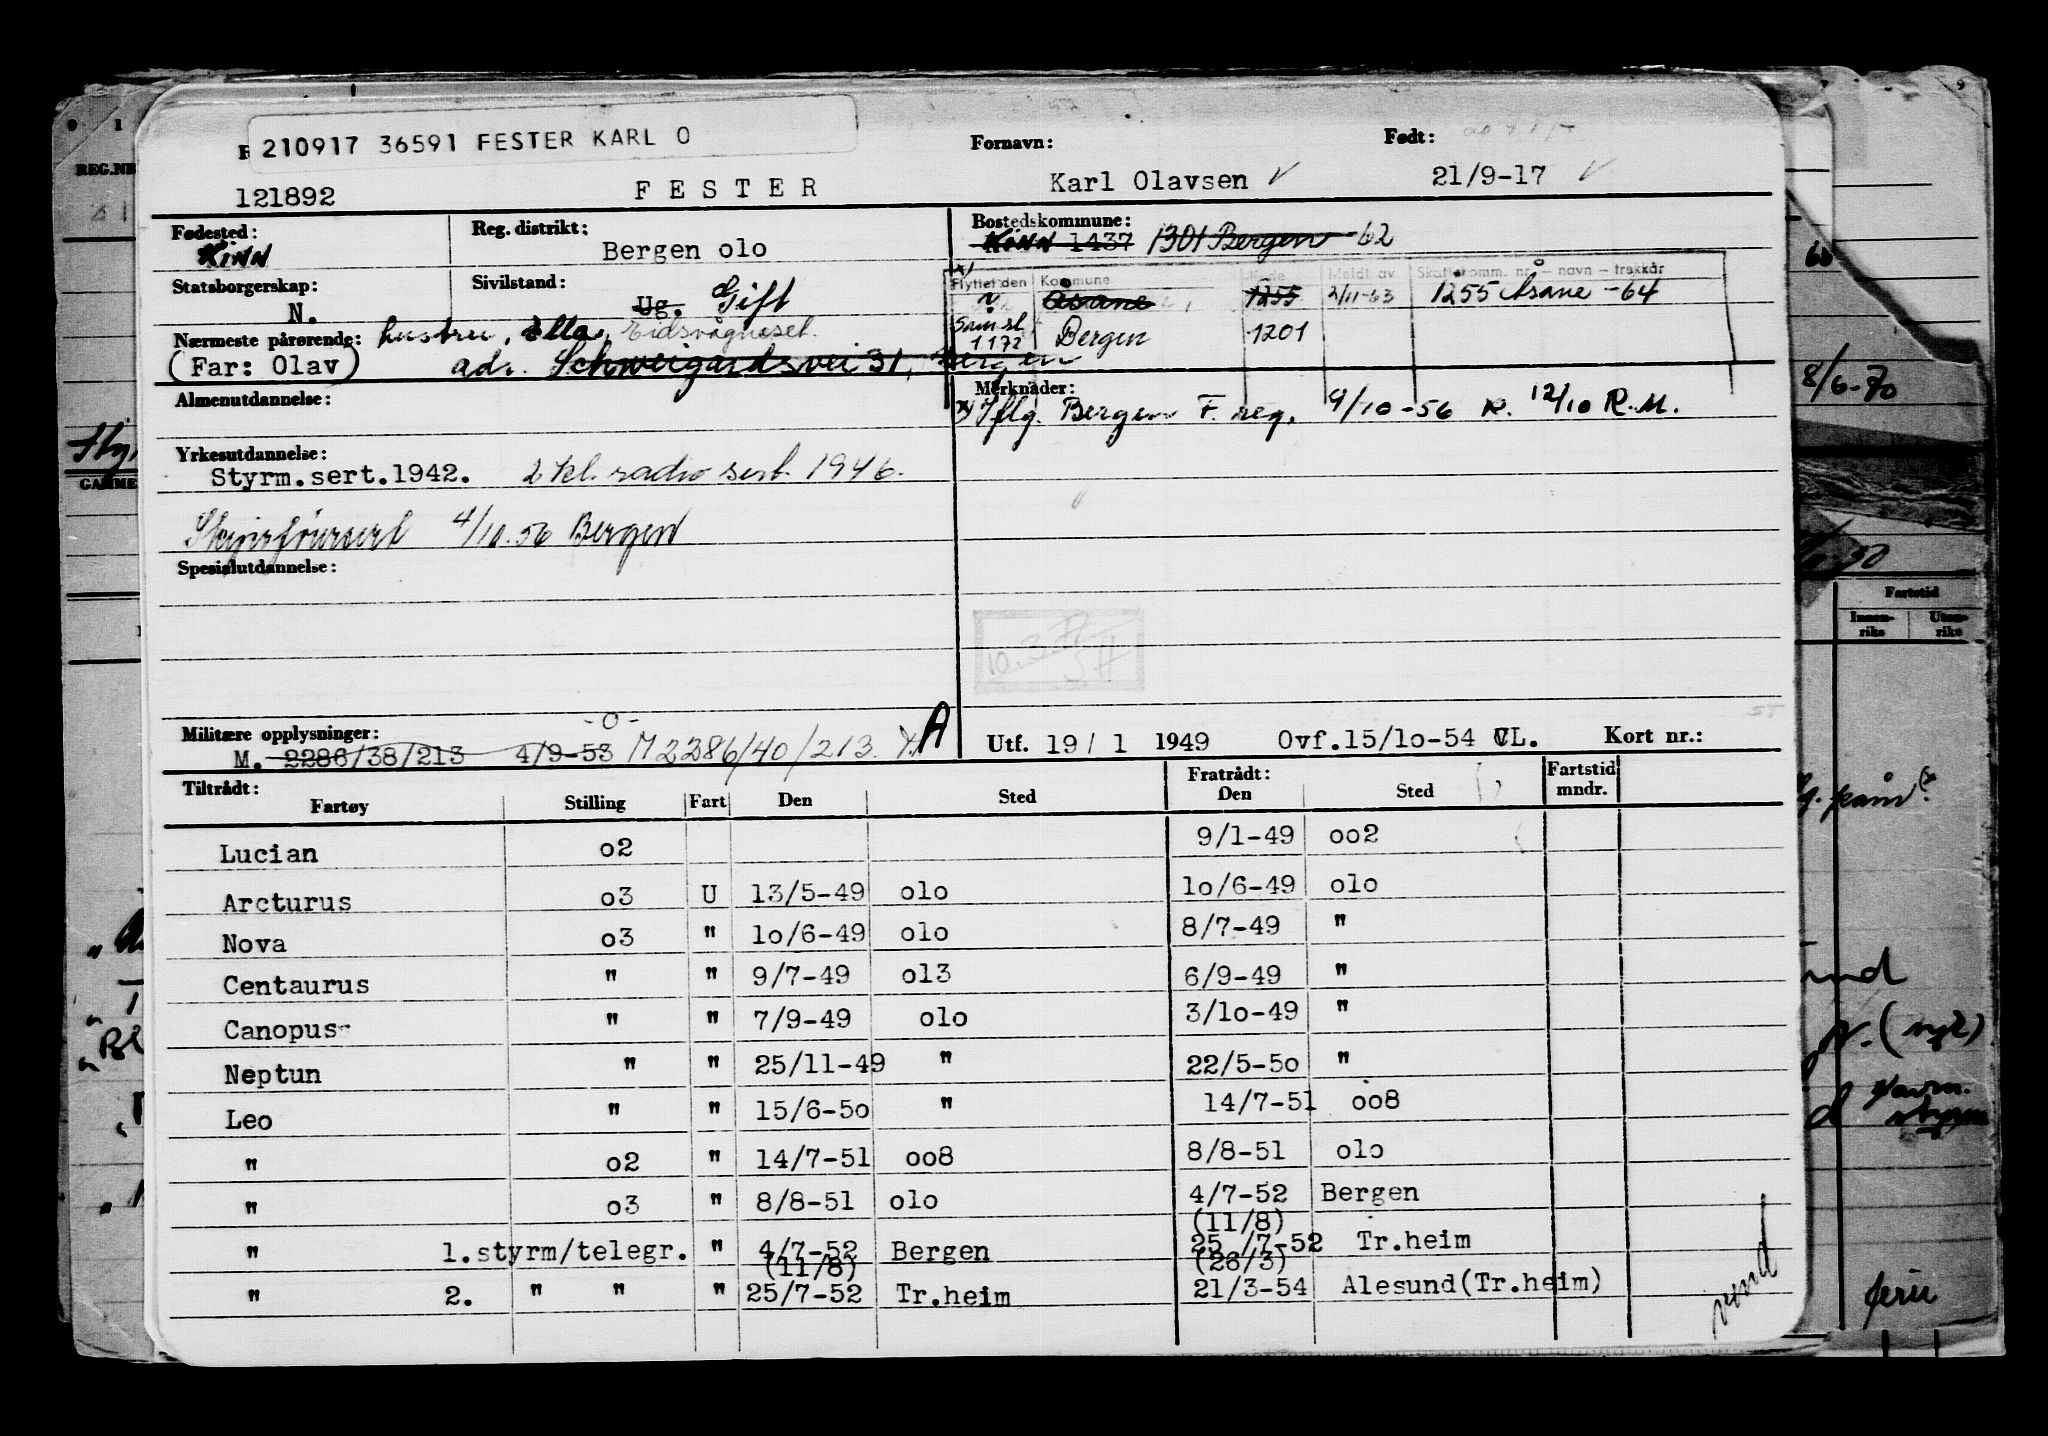 210917 36591 FESTER KARL O
Fornavn:
Født:
121892
FESTER
Karl Olavsen
21/9-17
REG.NR
Fødested:
Kinn
Reg. distrikt:
Bergen olo
Bostedskommune:
Kinn 1437 1301 Bergen -62
Statsborgerskap:
N.
Sivilstand:
Ug. Gift
Flyttet den
Kommune
Kode
Meldt av
Skattekomm. nr. – navn – trekkår
Åsane
1255
2/11-63
1255 Åsane -64
1172
Bergen
1201
Nærmeste pårørende: hustru, Ella, Eidsvågneset.
(Far: Olav)
adr. Schweigårdsvei 31, Bergen
Almenutdannelse:
Merknader:
x) Iflg. Bergen F. reg. 9/10-56 R. 12/10 R.M.
8/6-70
Yrkesutdannelse:
Styrm.sert.1942. 2 kl. radio sert. 1946.
Skipsførersert 4/10.56 Bergen
Spesialutdannelse:
Fartstid
Innen-
riks
Uten-
riks
Militære opplysninger:
-O-
M. 2286/38/213 4/9-53 M2286/40/213. A
Utf. 19/1 1949
Ovf.15/10-54 CL.
Kort nr.:
Tiltrådt:
Fartøy
Stilling
Fart
Den
Sted
Fratrådt:
Den
Sted
Fartstid
mndr.
Lucian o2 9/1-49 oo2
Arcturus o3 U 13/5-49 olo lo/6-49 olo
Nova o3 " lo/6-49 olo 8/7-49 "
Centaurus " " 9/7-49 ol3 6/9-49 "
Canopus " " 7/9-49 olo 3/lo-49 "
Neptun " " 25/11-49 " 22/5-5o "
Leo " " 15/6-5o " 14/7-51 oo8
" o2 " 14/7-51 oo8 8/8-51 olo
" o3 " 8/8-51 olo 4/7-52 Bergen
(11/8)
" 1.styrm/telegr. " 4/7-52 Bergen 25/7-52 Tr.heim
(11/8) (26/3)
" 2. " " " 25/7-52 Tr.heim 21/3-54 Alesund(Tr.heim)
vend